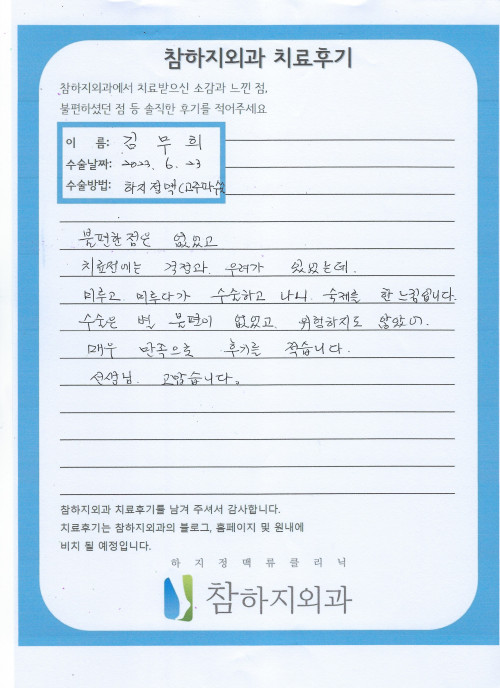 참하지외과 치료후기
참하지외과에서 치료받으신 소감과 느낀 점,
불편하셨던 점 등 솔직한 후기를 적어주세요
이 름: 김 무 희
수술날짜: 2023. 6. 23
수술방법: 하지정맥(고주파수술
불편한점은 없었고
치료전에는 걱정과 우려가 있었는데.
미루고 미루다가 수술하고 나니 숙제를 한 느낌입니다.
수술은 별 불편이 없었고, 위험하지도 않았어.
매우 만족으로 후기를 적습니다.
선생님. 고맙습니다.
참하지외과 치료후기를 남겨 주셔서 감사합니다.
치료후기는 참하지외과의 블로그, 홈페이지 및 원내에
비치 될 예정입니다.
하지정맥류클리닉
참하지외과